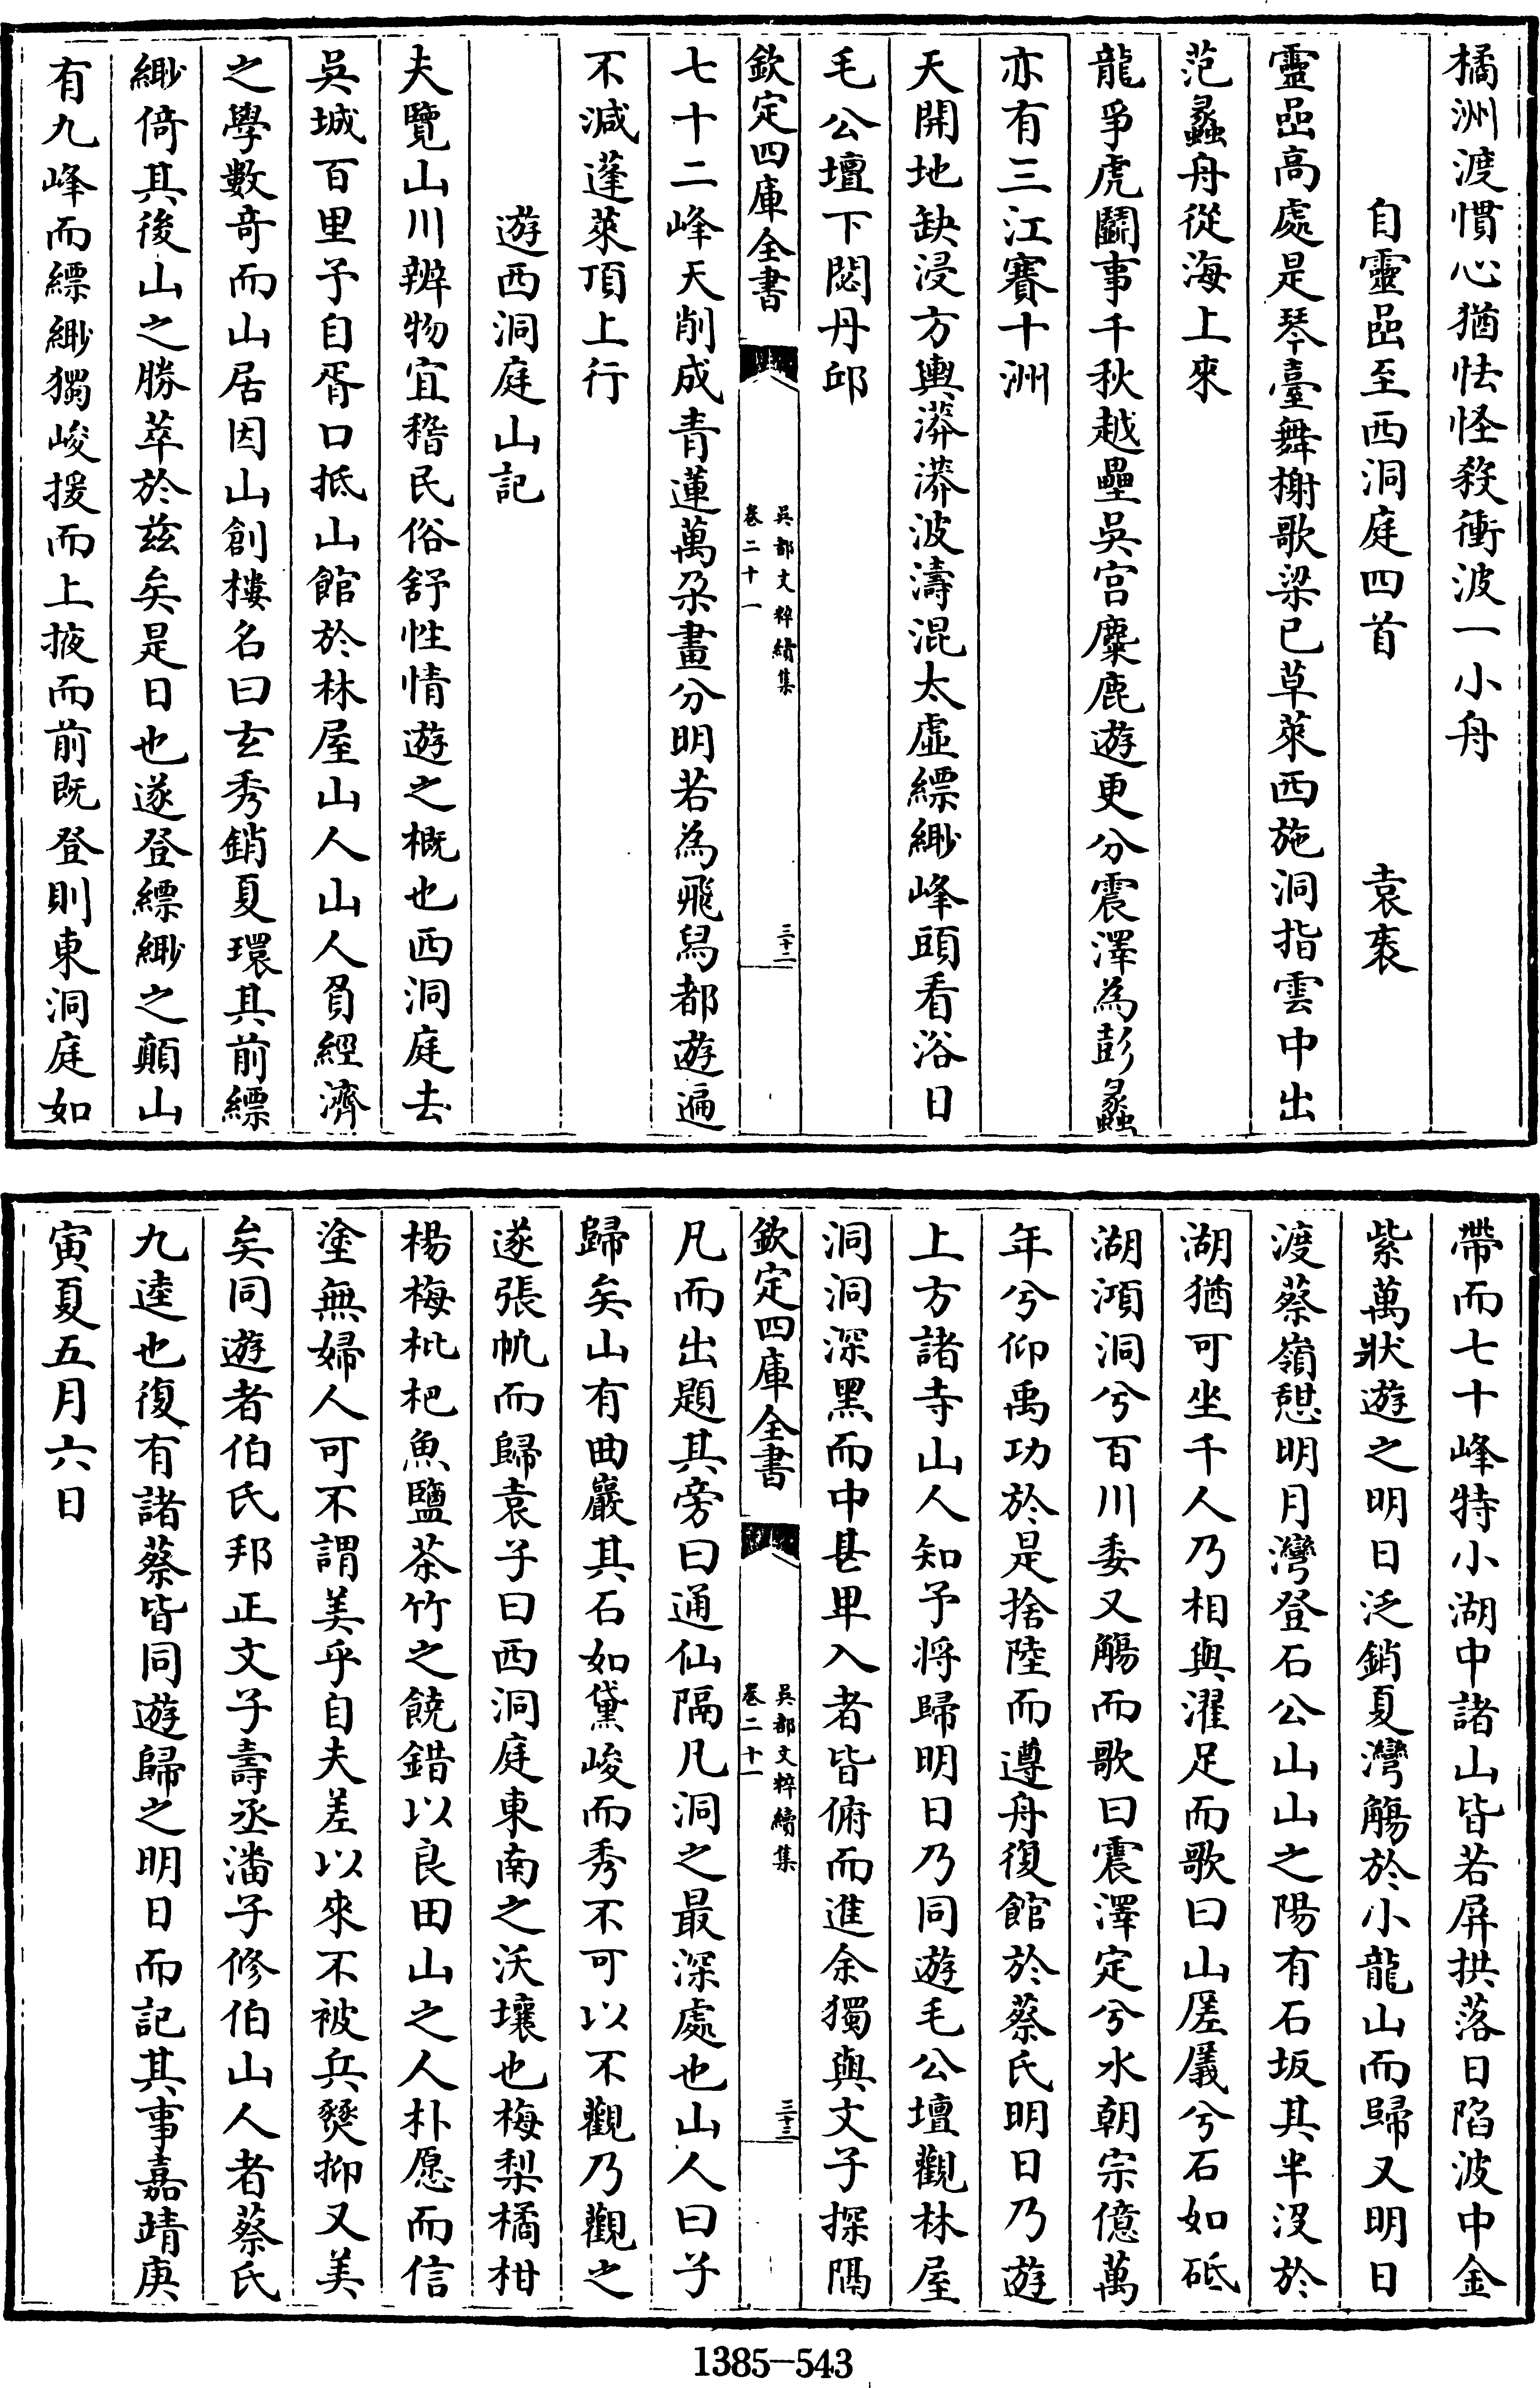 橘洲渡慣心猶怯怪殺衝波一小舟
自靈嵒至西洞庭四首　袁袠
靈嵒高處是琴臺舞榭歌梁已草萊西施洞指雲中出
范蠡舟從海上來
龍爭虎鬭事千秋越壘吳宫麋鹿遊更分震澤為彭蠡
亦有三江賽十洲
天開地缺浸方輿漭漭波濤混太虛縹緲峰頭看浴日
毛公壇下閟丹邱
欽定四庫全書
吳都文粹續集
卷二十一
三十二
七十二峰天削成青蓮萬朶畫分明若為飛舄都遊遍
不減蓬萊頂上行
遊西洞庭山記
夫覽山川辨物宜稽民俗舒性情遊之概也西洞庭去
吳城百里予自胥口抵山館於林屋山人山人負經濟
之學數奇而山居因山創樓名曰玄秀銷夏環其前縹
緲倚其後山之勝萃於兹矣是日也遂登縹緲之顛山
有九峰而縹緲獨峻援而上掖而前既登則東洞庭如
帶而七十峰特小湖中諸山皆若屏拱落日陷波中金
紫萬狀遊之明日泛銷夏灣觴於小龍山而歸又明日
渡蔡嶺憩明月灣登石公山山之陽有石坂其半沒於
湖猶可坐千人乃相與濯足而歌曰山厜㕒兮石如砥
湖澒洞兮百川委又觴而歌曰震澤定兮水朝宗億萬
年兮仰禹功於是捨陸而遵舟復館於蔡氏明日乃遊
上方諸寺山人知予將歸明日乃同遊毛公壇觀林屋
洞洞深黑而中甚卑入者皆俯而進余獨與文子探隔
欽定四庫全書
吳都文粹續集
卷二十一
三十三
凡而出題其旁曰通仙隔凡洞之最深處也山人曰子
歸矣山有曲巖其石如黛峻而秀不可以不觀乃觀之
遂張帆而歸袁子曰西洞庭東南之沃壤也梅梨橘柑
楊梅枇杷魚鹽茶竹之饒錯以良田山之人朴愿而信
塗無婦人可不謂美乎自夫差以來不被兵燹抑又美
矣同遊者伯氏邦正文子壽丞潘子修伯山人者蔡氏
九逵也復有諸蔡皆同遊歸之明日而記其事嘉靖庚
寅夏五月六日
1385-543